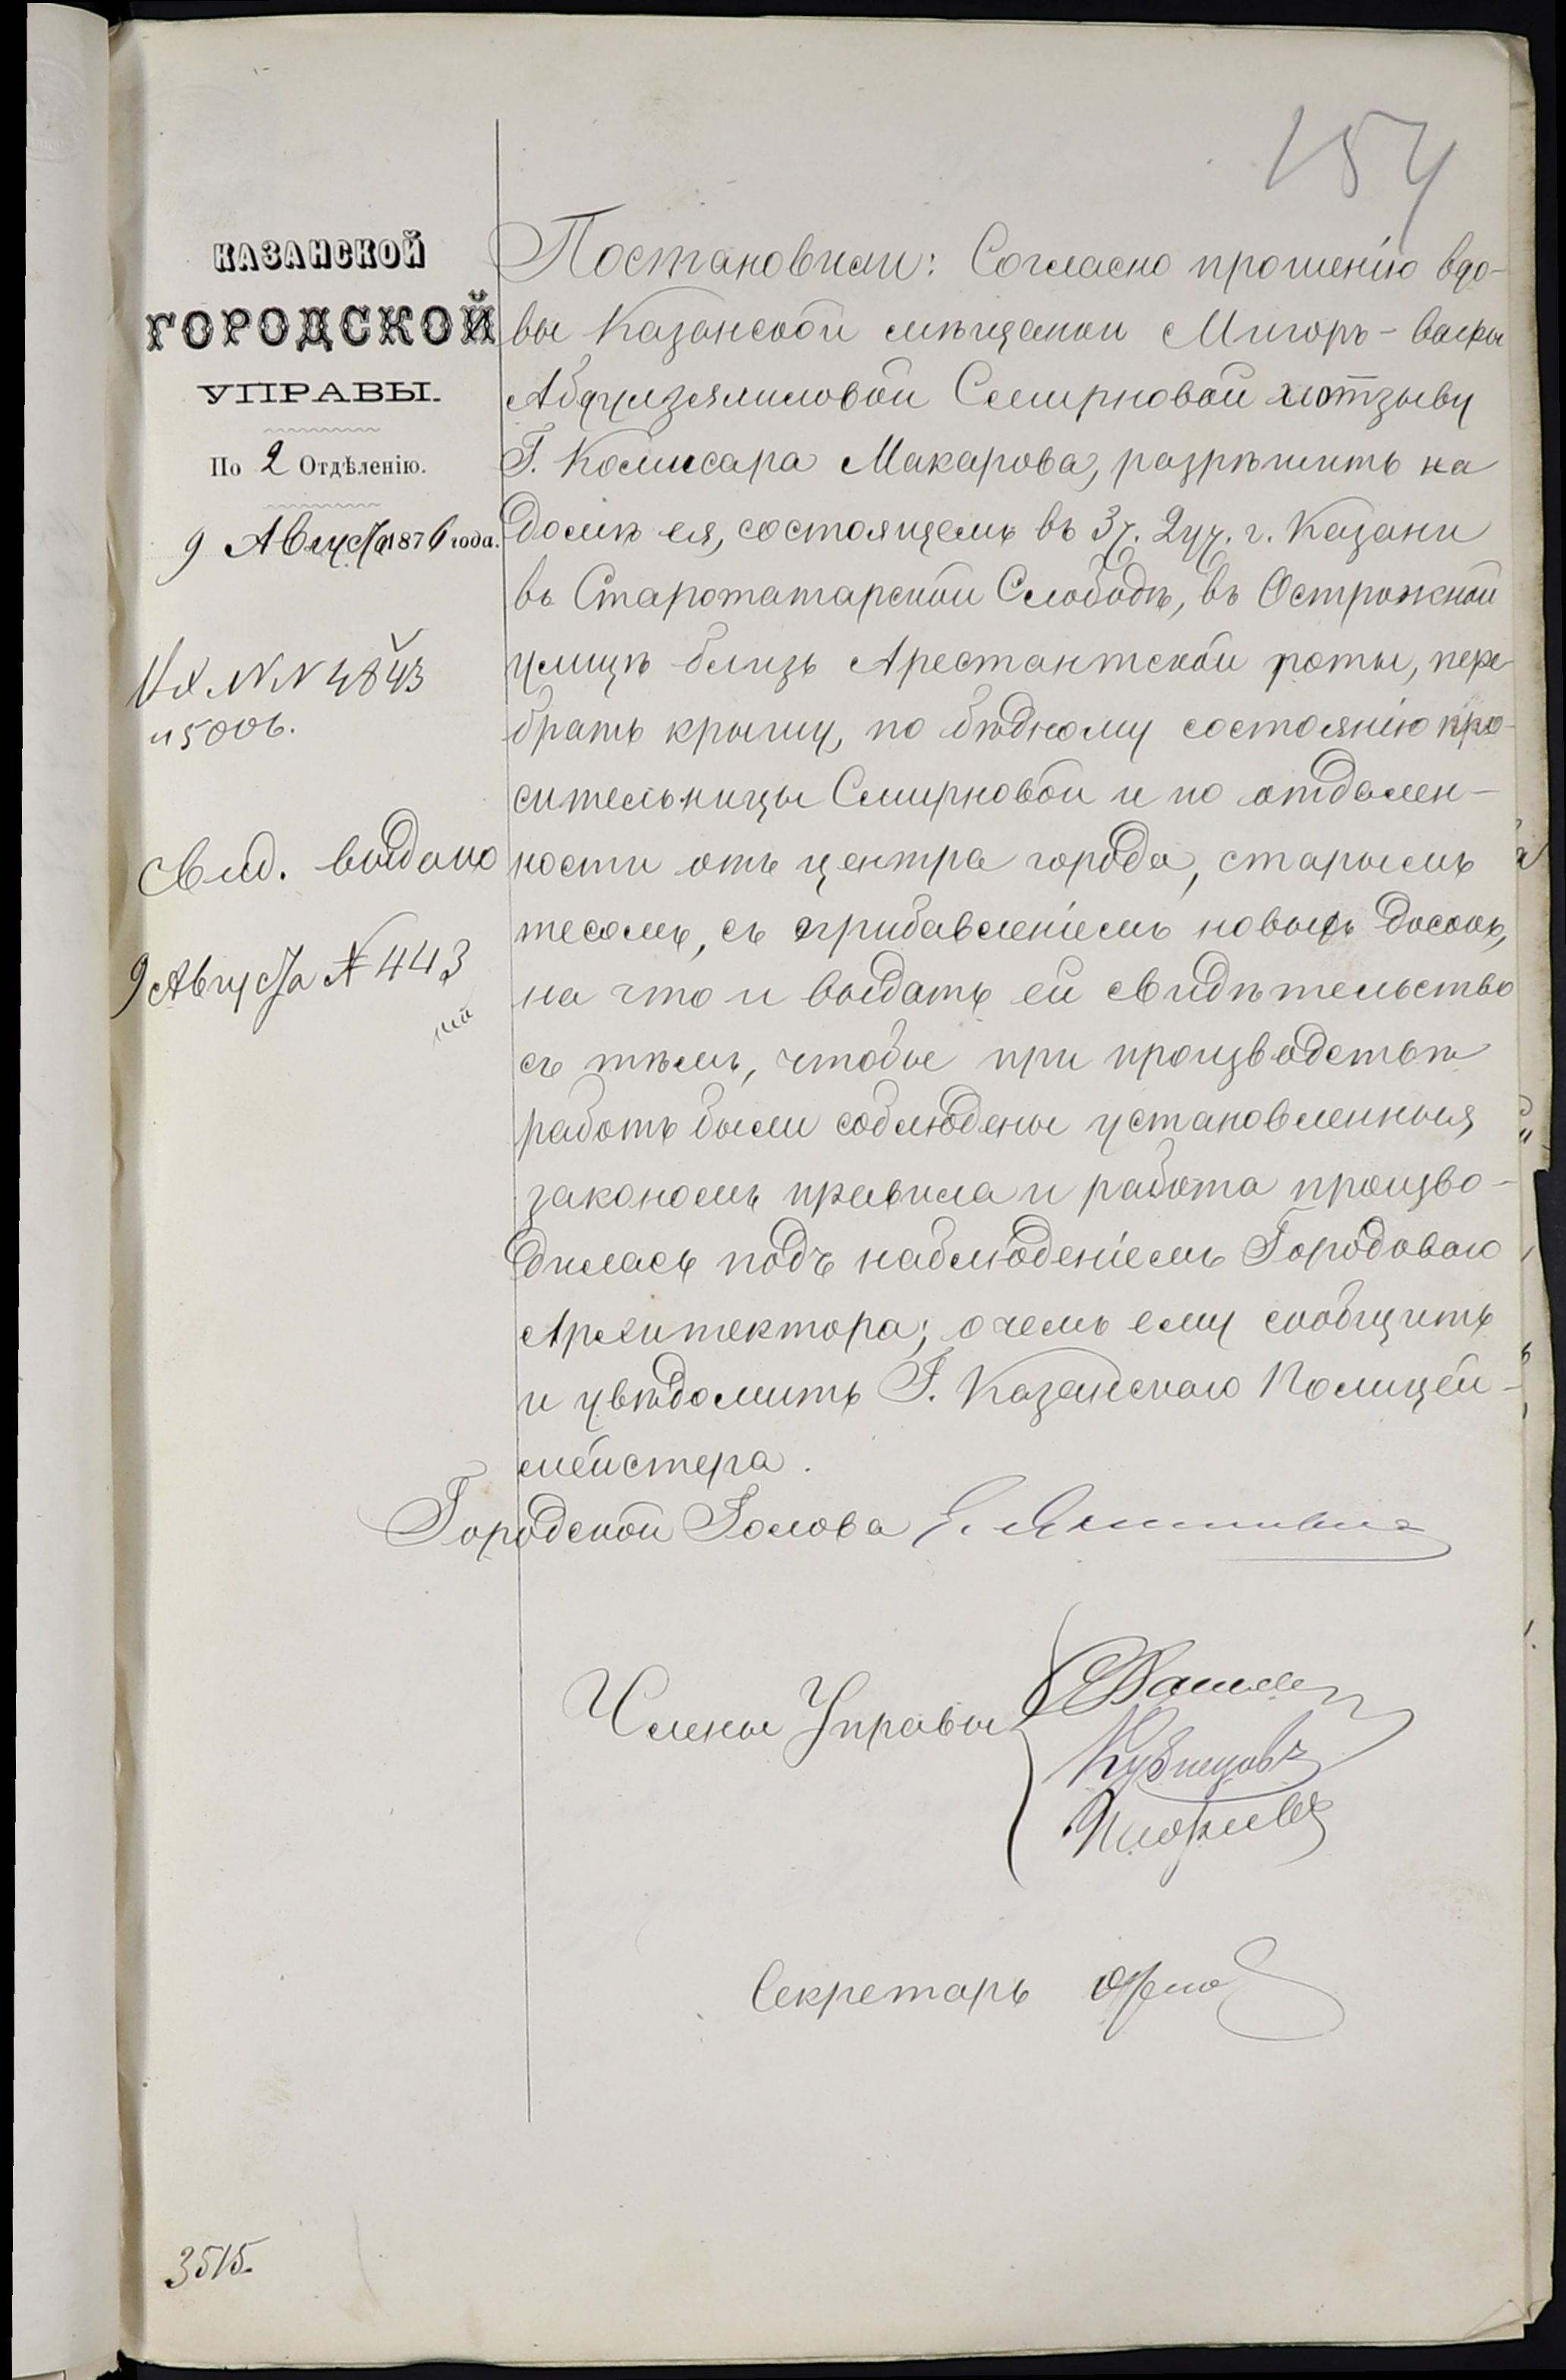 154
КАЗАНСКОЙ
ГОРОДСКОЙ
УПРАВЫ.
По 2 Отдѣленію.
9 Августа 1876 года.
Вх. NN 4843
и 5006.
Свид. выдано
9 Августа № 443
Постановили: Согласно прошенію вдо-
вы Казанской мѣщанки Мигоръ-
Абдулзялиловой Смирновой и отзыву
Г. Комисара Макарова, разрѣшить на
домѣ ея, состоящемъ въ 3 ч. 2 уч. г. Казани
въ Старотатарской Слободѣ, въ Острожной
улицѣ близь Арестантской роты, пере-
брать крышу, по бѣдному состоянію про-
сительницы Смирновой и по отдален-
ности отъ центра города, старымъ
тесомъ, съ прибавленіемъ новыхъ досокъ,
на что и выдать ей свидѣтельство
съ тѣмъ, чтобы при производствѣ
работъ были соблюдены установленныя
закономъ правила и работа произво-
дилась подъ наблюденіемъ Городоваго
Архитектора; о чемъ ему сообщить
и увѣдомить Г. Казанскаго Полицей-
мейстера.
Городской Голова
Члены Управы
Кузнецовъ
Секретарь
3515.